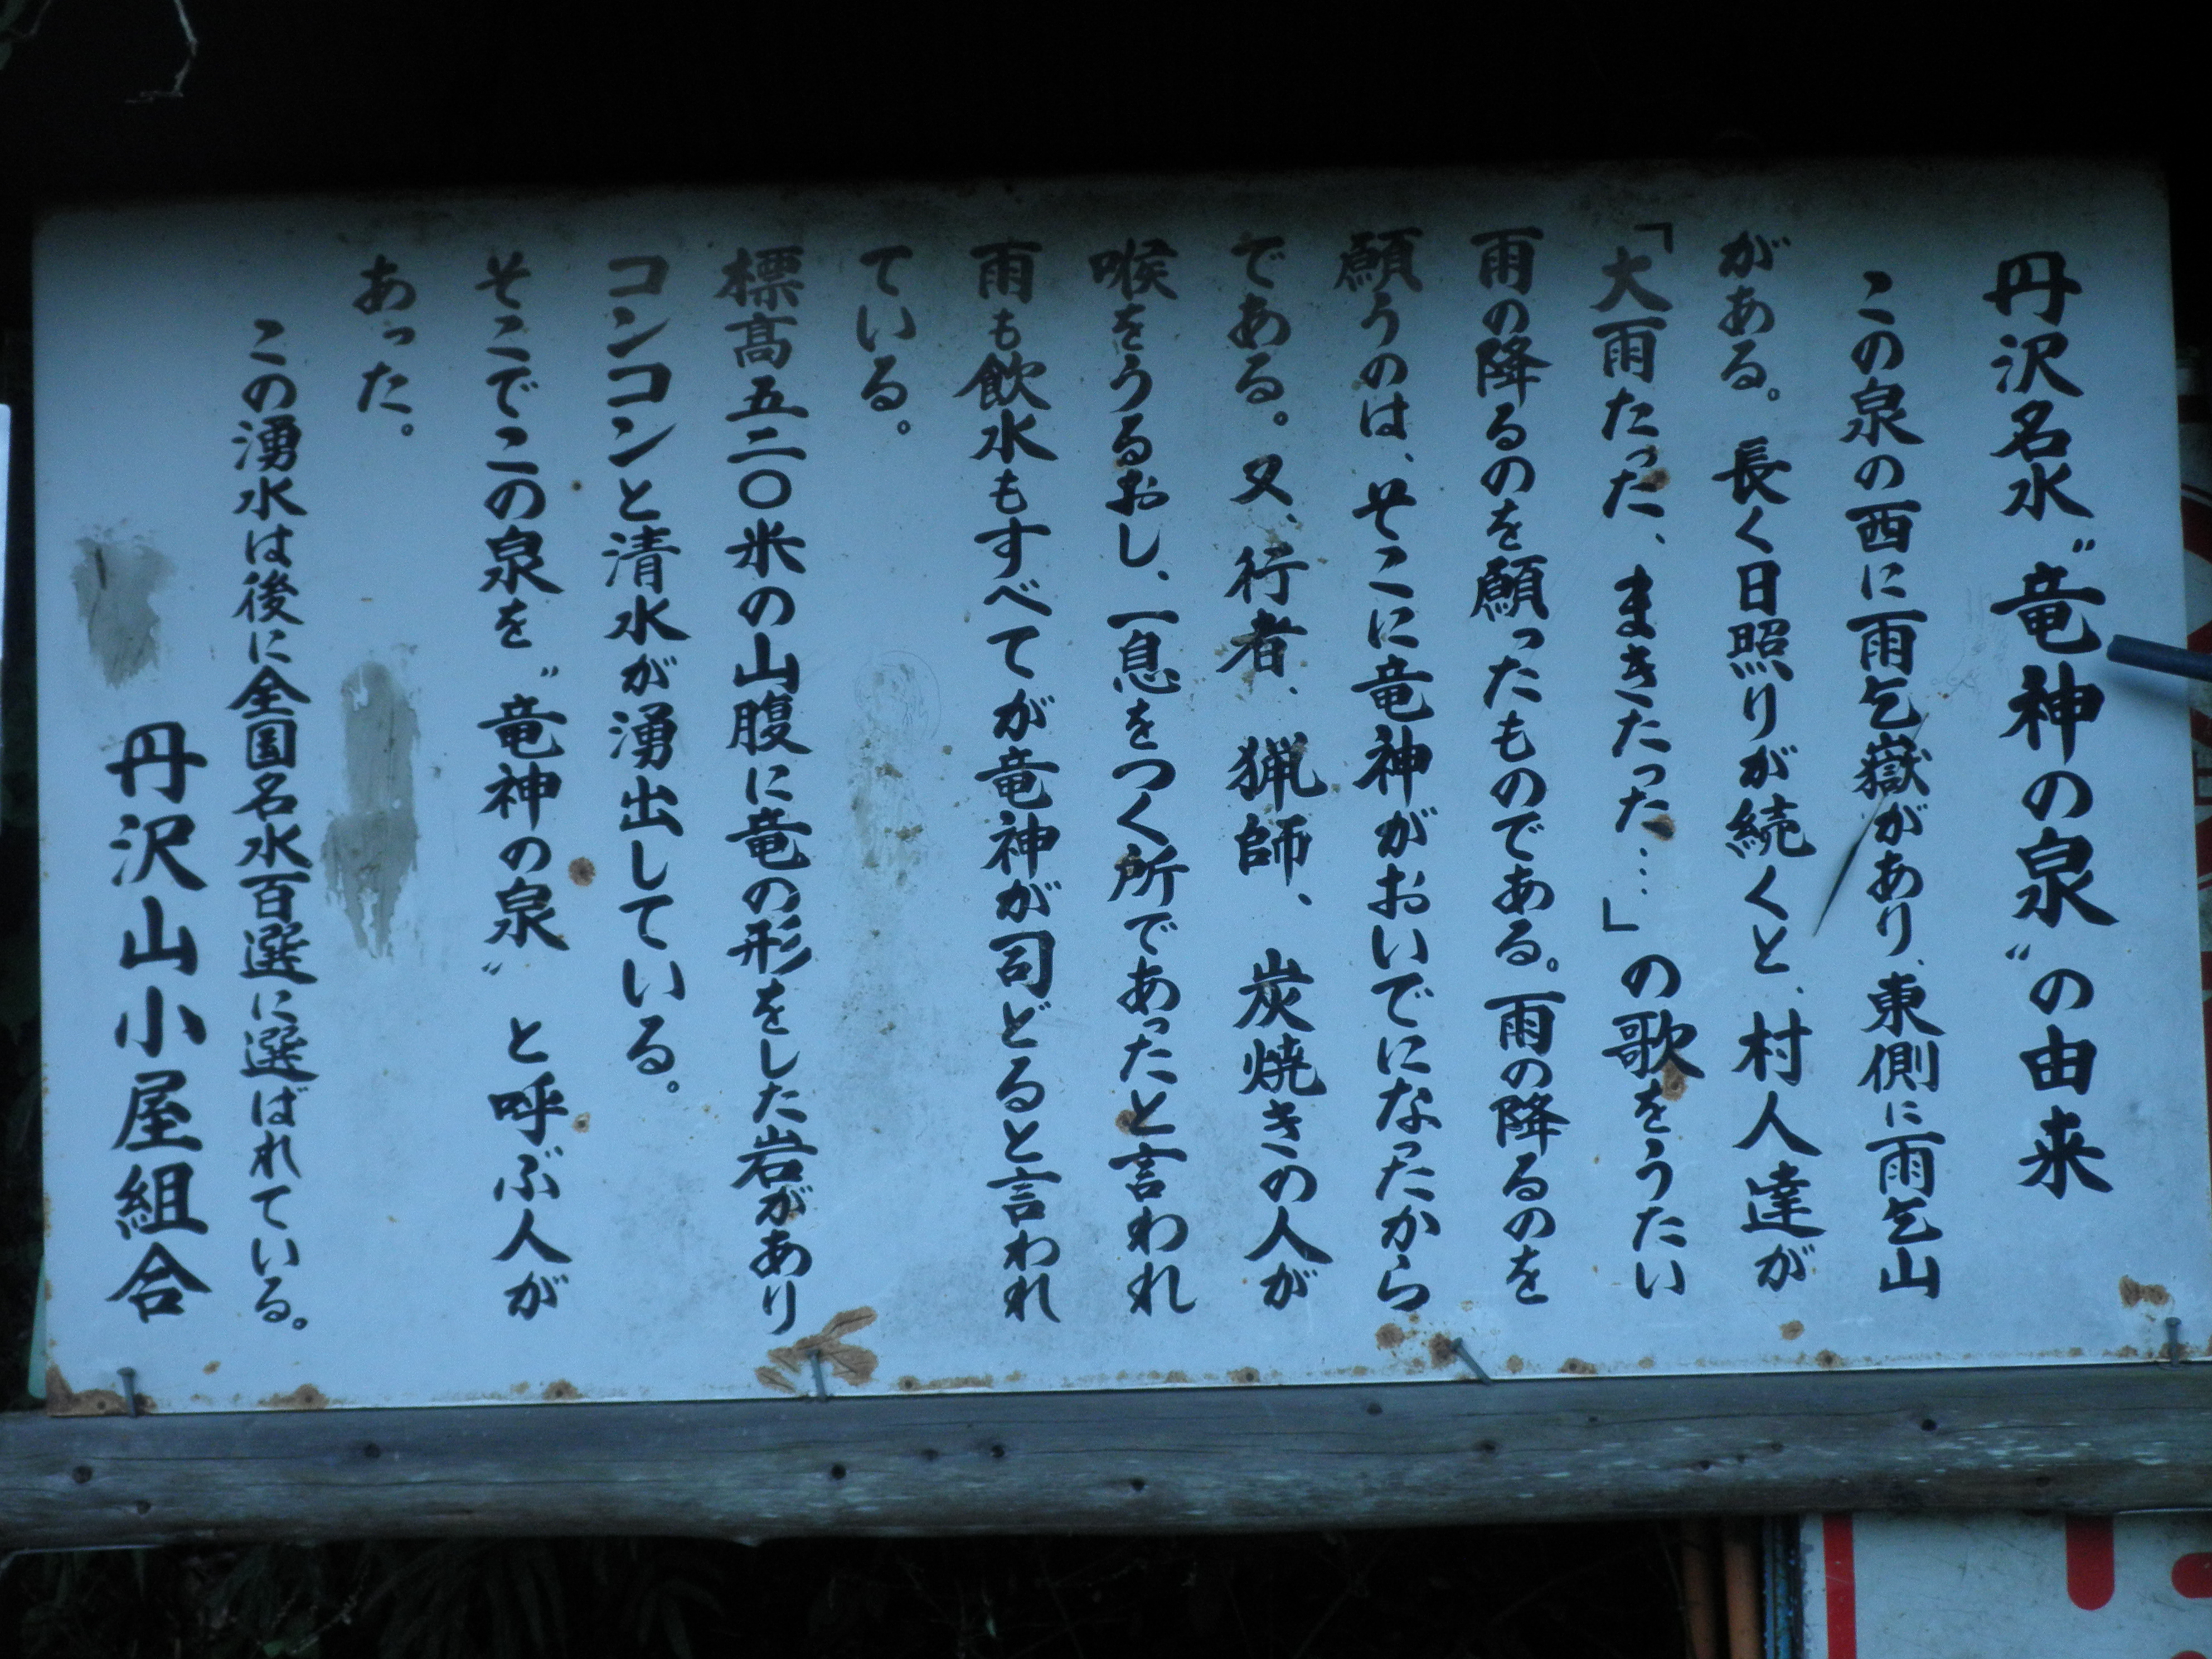 丹沢名水〝竜神の泉〟の由来
この泉の西に雨乞嶽があり、東側に雨乞山
がある。長く日照りが続くと、村人達が
「大雨たった、まきたった…」の歌をうたい
雨の降るのを願ったものである。雨の降るのを
願うのは、そこに竜神がおいでになったから
である。又、行者、猟師、炭焼きの人が
喉をうるおし、一息をつく所であったと言われ
雨も飲水もすべてが竜神が司どると言われ
ている。
標高五二〇米の山腹に竜の形をした岩があり
コンコンと清水が湧出している。
そこでこの泉を〝竜神の泉〟と呼ぶ人が
あった。
この湧水は後に全国名水百選に選ばれている。
丹沢山小屋組合